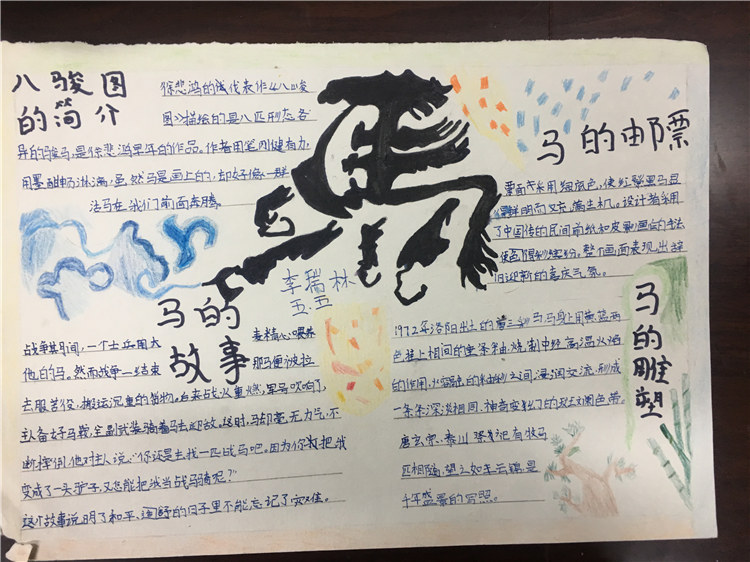 八骏图
的简介
徐悲鸿的代表作《八骏
图》描绘的是八匹形态各
异的骏马,是徐悲鸿早年的作品。作者用笔刚健有力,
用墨酣畅淋漓,虽然马是画上的,却好像一群
活马在我们前面奔腾。
马的邮票
票面采用细底色,使红鬃黑马显
鲜明而又充满生机。设计者采用
了中国传的民间剪纸和皮影画的手法
使色调缤纷。整个画面表现出辞
旧迎新的喜庆气氛。
李瑞林
五.五
马的
故事
战争其月间,一个士兵用大麦精心喂养
他的马。然而战争一结束那马便被拉
去服苦役,搬运沉重的货物。后来战火重燃,军号吹响了,
主人备好马鞍,全副武装骑着马去迎敌。这时,马却毫无力气,不
断摔倒,他对主人说:“你还是去找一匹战马吧。因为你教把我
变成了一头驴子,又怎能把我当战马骑呢?”
这个故事说明了和平、闲舒的日子里不能忘记了灾难。
马的雕塑
1972年洛阳出土的唐三彩马,马身上用黄蓝两
色挂上相间的垂条釉,烧制中经高温火焰
的作用,釉之间浸润交流,形成
一条条深淡相同,神奇变幻了的斑斓色带。
唐玄宗,泰川
匹相随,望之如云锦是
千年盛景的写照。